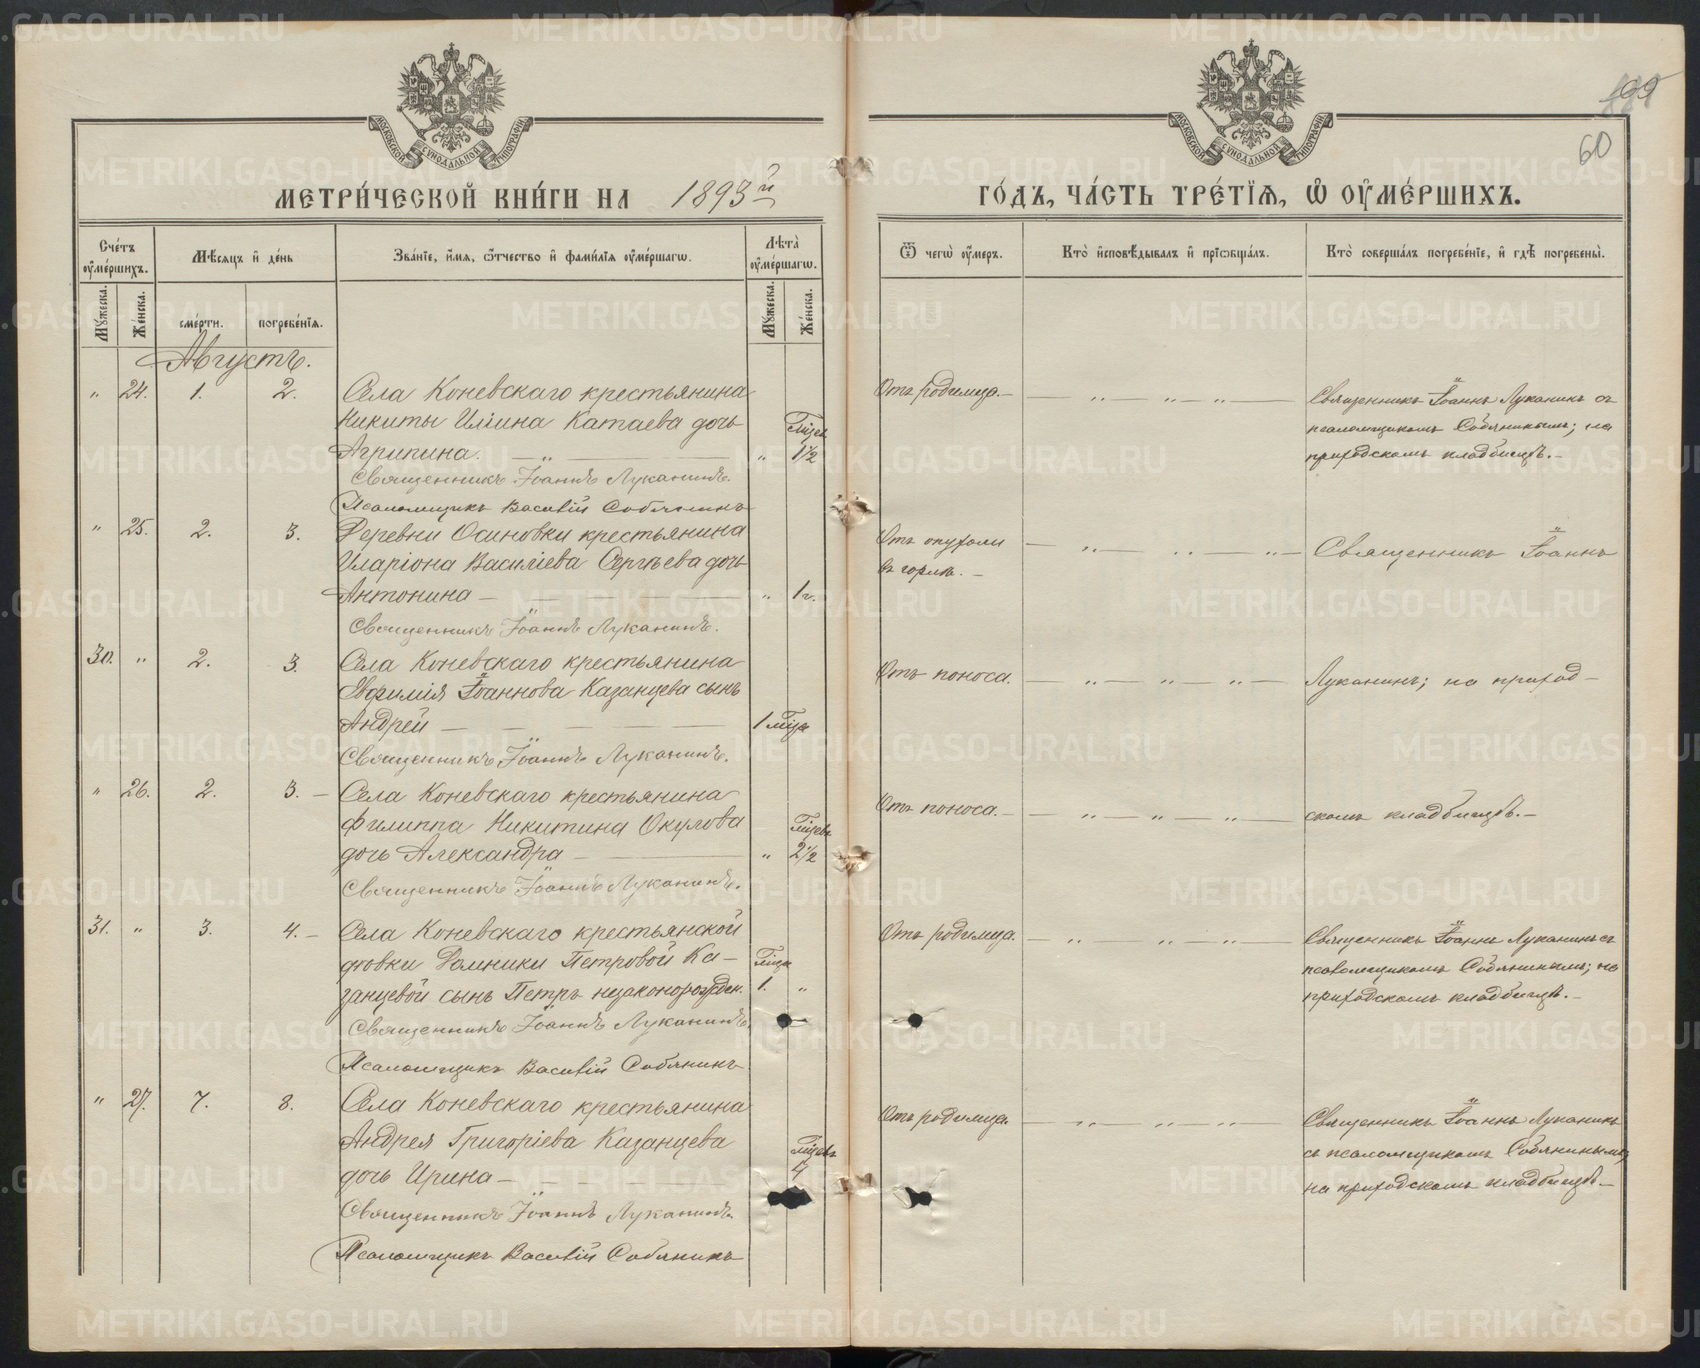 МОСКОВСКОЙ СѴНОДАЛЬНОЙ ТИПОГРАФІИ
МОСКОВСКОЙ СѴНОДАЛЬНОЙ ТИПОГРАФІИ
60
МЕТРИ́ЧЕСКОЙ КНИ́ГИ НА 1893й
ГО́ДЪ, ЧА́СТЬ ТРЕ́ТІЯ, Ѡ ОУМЕ́РШИХЪ.
Сче́тъ оуме́ршихъ.
Мѣ́сяцъ и де́нь
Зва́ніе, и́мя, ѻ́тчество и фами́лія оуме́ршагѡ.
Лѣта̀ оуме́ршагѡ.
Ѿ чегѡ̀ оу́меръ.
Кто̀ исповѣ́дывалъ и прїѡбща́лъ.
Кто̀ соверша́лъ погребе́ніе, и гдѣ̀ погребены̀.
Му́жеска. Же́нска. сме́рти. погребе́нія. Му́жеска. Же́нска.
Августъ.
" 24. 1. 2. Села Коневскаго крестьянина
Никиты Иліина Катаева дочь Мцевъ
Агрипина. — " — " 1½
Священникъ Іоаннъ Луканинъ.
Псаломщикъ Василій Собянинъ
Отъ родимца. — " — " — " —
Священникъ Іоаннъ Луканинъ съ
псаломщикомъ Собянинымъ; на
приходскомъ кладбищѣ. —
" 25. 2. 3. Деревни Осиновки крестьянина
Иларіона Василіева Сергѣева дочь
Антонина — " 1 г.
Священникъ Іоаннъ Луканинъ.
Отъ опухоли — " — " — " —
въ горлѣ. —
Священникъ Іоаннъ
30. " 2. 3. Села Коневскаго крестьянина
Евфимія Іоаннова Казанцева сынъ
Андрей — 1 мца
Священникъ Іоаннъ Луканинъ.
Отъ поноса. — " — " — " —
Луканинъ; на приход-
" 26. 2. 3. — Села Коневскаго крестьянина
Филиппа Никитина Окулова Мцевъ
дочь Александра — " 2½
Священникъ Іоаннъ Луканинъ.
Отъ поноса. — " — " — " —
скомъ кладбищѣ. —
31. " 3. 4. — Села Коневскаго крестьянской
дѣвки Домники Петровой Ка- Мца
занцевой сынъ Петръ незаконорожден. 1. "
Священникъ Іоаннъ Луканинъ.
Псаломщикъ Василій Собянинъ
Отъ родимца. — " — " — " —
Священникъ Іоаннъ Луканинъ съ
псаломщикомъ Собянинымъ; на
приходскомъ кладбищѣ. —
" 27. 7. 8. Села Коневскаго крестьянина
Андрея Григоріева Казанцева Мцевъ
дочь Ирина —
Священникъ Іоаннъ Луканинъ.
Псаломщикъ Василій Собянинъ
Отъ родимца. — " — " — " —
Священникъ Іоаннъ Луканинъ
съ псаломщикомъ Собянинымъ;
на приходскомъ кладбищѣ. —
METRIKI.GASO-URAL.RU